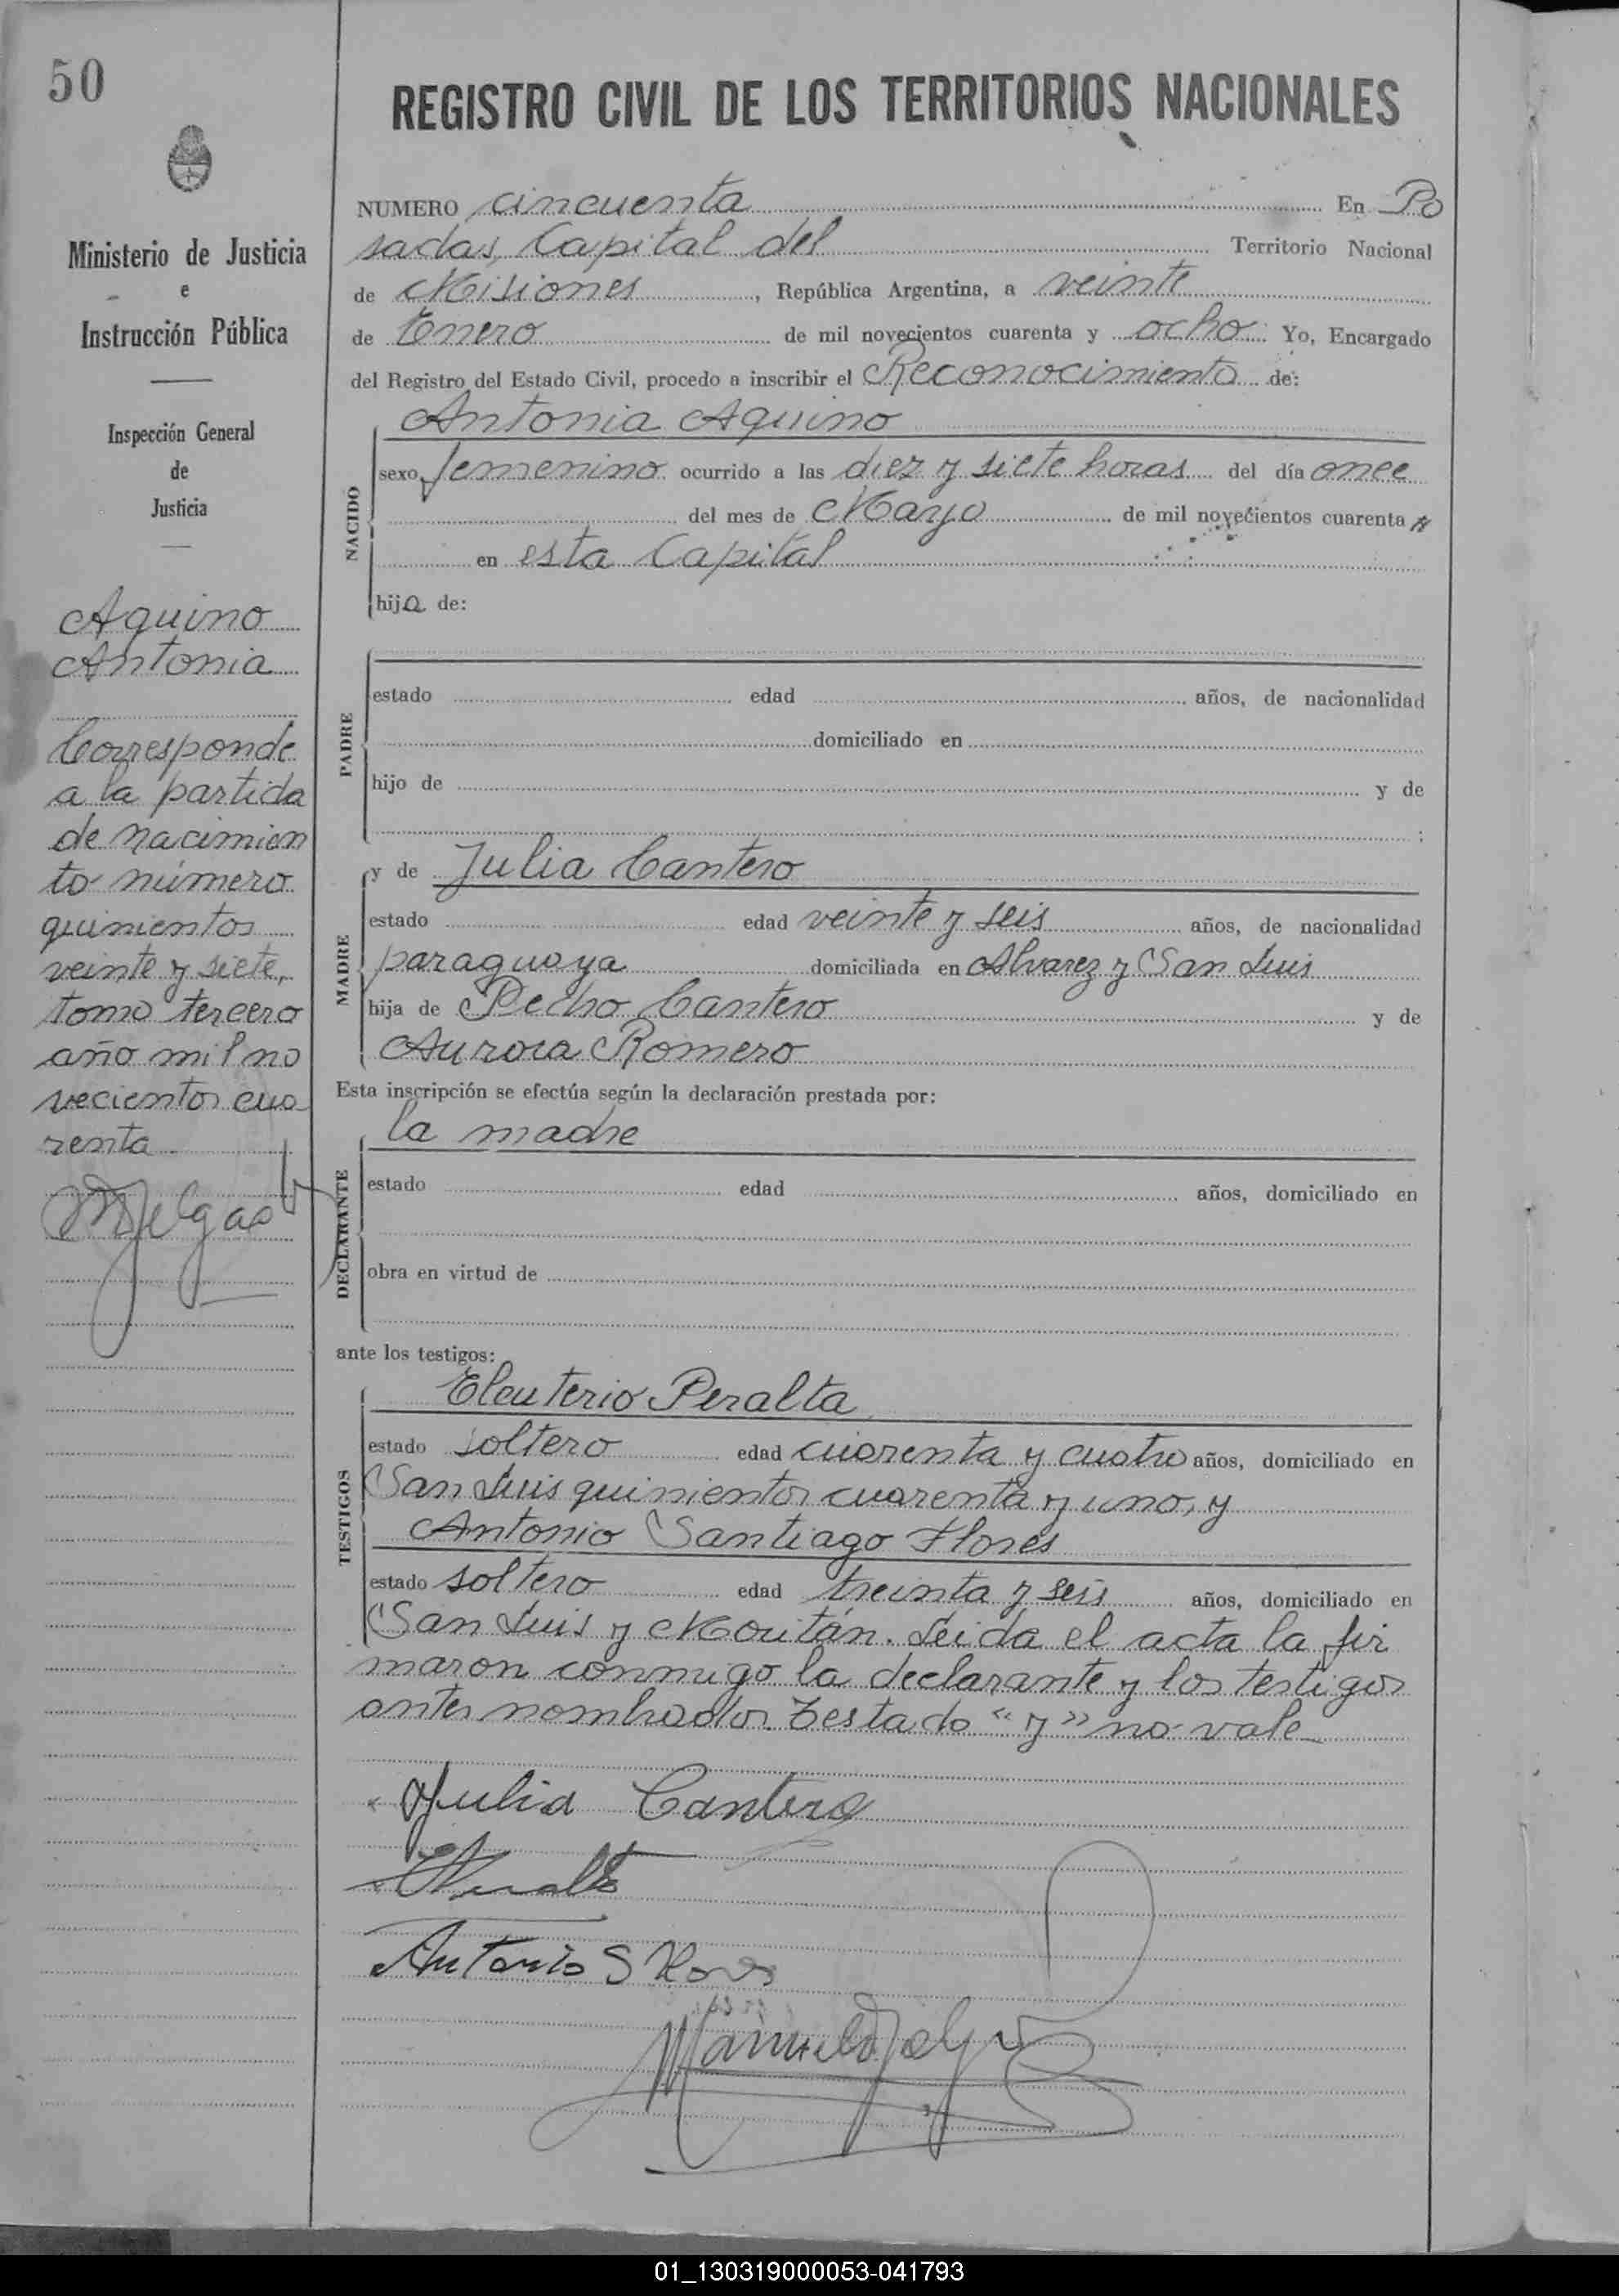 50
REGISTRO CIVIL DE LOS TERRITORIOS NACIONALES
Ministerio de Justicia
e
Instrucción Pública
Inspección General
de
Justicia
Aquino
Antonia
Corresponde
a la partida
de nacimien
to número
quinientos
veinte y siete,
tomo tercero
año mil no
vecientos cua
renta
NUMERO cincuenta En Po
sadas, Capital del Territorio Nacional
de Misiones, República Argentina, a veinte
de Enero de mil novecientos cuarenta y ocho. Yo, Encargado
del Registro del Estado Civil, procedo a inscribir el Reconocimiento de:
Antonia Aquino
NACIDO
sexo femenino ocurrido a las diez y siete horas del día once
del mes de Mayo de mil novecientos cuarenta y
en esta Capital
hija de:
PADRE
estado edad años, de nacionalidad
domiciliado en
hijo de y de
;
MADRE
y de Julia Cantero
estado edad veinte y seis años, de nacionalidad
paraguaya domiciliada en Alvarez y San Luis
hija de Pedro Cantero y de
Aurora Romero
Esta inscripción se efectúa según la declaración prestada por:
la madre
DECLARANTE
estado edad años, domiciliado en
obra en virtud de
ante los testigos:
Eleuterio Peralta
TESTIGOS
estado soltero edad cuarenta y cuatro años, domiciliado en
San Luis quinientos cuarenta y uno, y
Antonio Santiago Flores
estado soltero edad treinta y seis años, domiciliado en
San Luis y Moritán. Leida el acta la fir
maron conmigo la declarante y los testigos
antes nombrados. Testado "y" no vale
Julia Cantero
Peralta
Antonio S Flores
Manuel
01_130319000053-041793